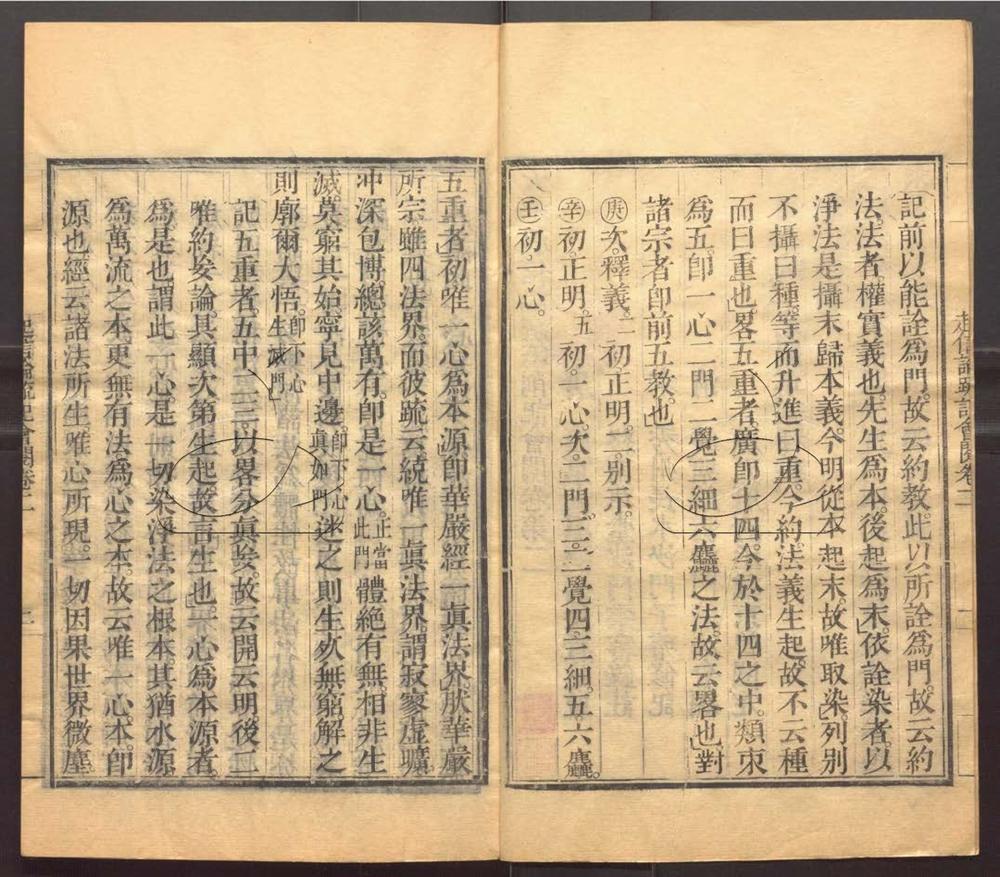 記前以能詮爲門。故云約教。此以所詮爲門。故云約
法法者。權實義也。先生爲本。後起爲末。依詮染者。以
淨法是攝末歸本義。今明從本起末。故唯取染。列別
不攝曰種。等而升進曰重。今約法義生起。故不云種
而曰重也。畧五重者。廣即十四。今於十四之中。類束
爲五。即一心二門二覺三細六麤之法。故云畧也。對
諸宗者。即前五教也。
庚次釋義。二初正明。二別示。
辛初正明。五初一心。次二門。三二覺。四三細。五六麤。
壬初一心。
五重者。初唯一心爲本源。即華嚴經一眞法界。狀華嚴
所宗。雖四法界。而彼疏云。統唯一眞法界。謂寂寥虛曠
冲深包博。總該萬有。即是一心。正當此門體絕有無。相非生
滅。莫窮其始。寧見中邊。即下心眞如門迷之則生死無窮。解之
則廓爾大悟。即下心生滅門
記五重者。五中一二三。以畧分眞妄。故云開云明。後二
唯約妄論。具顯次第生起。故言生也。一心爲本源者。
爲是也。謂此一心。是一切染淨法之根本。其猶水源
爲萬流之本。更無有法爲心之本。故云唯一心本。即
源也。經云。諸法所生。唯心所現。一切因果世界微塵
起信論疏記會閱卷二